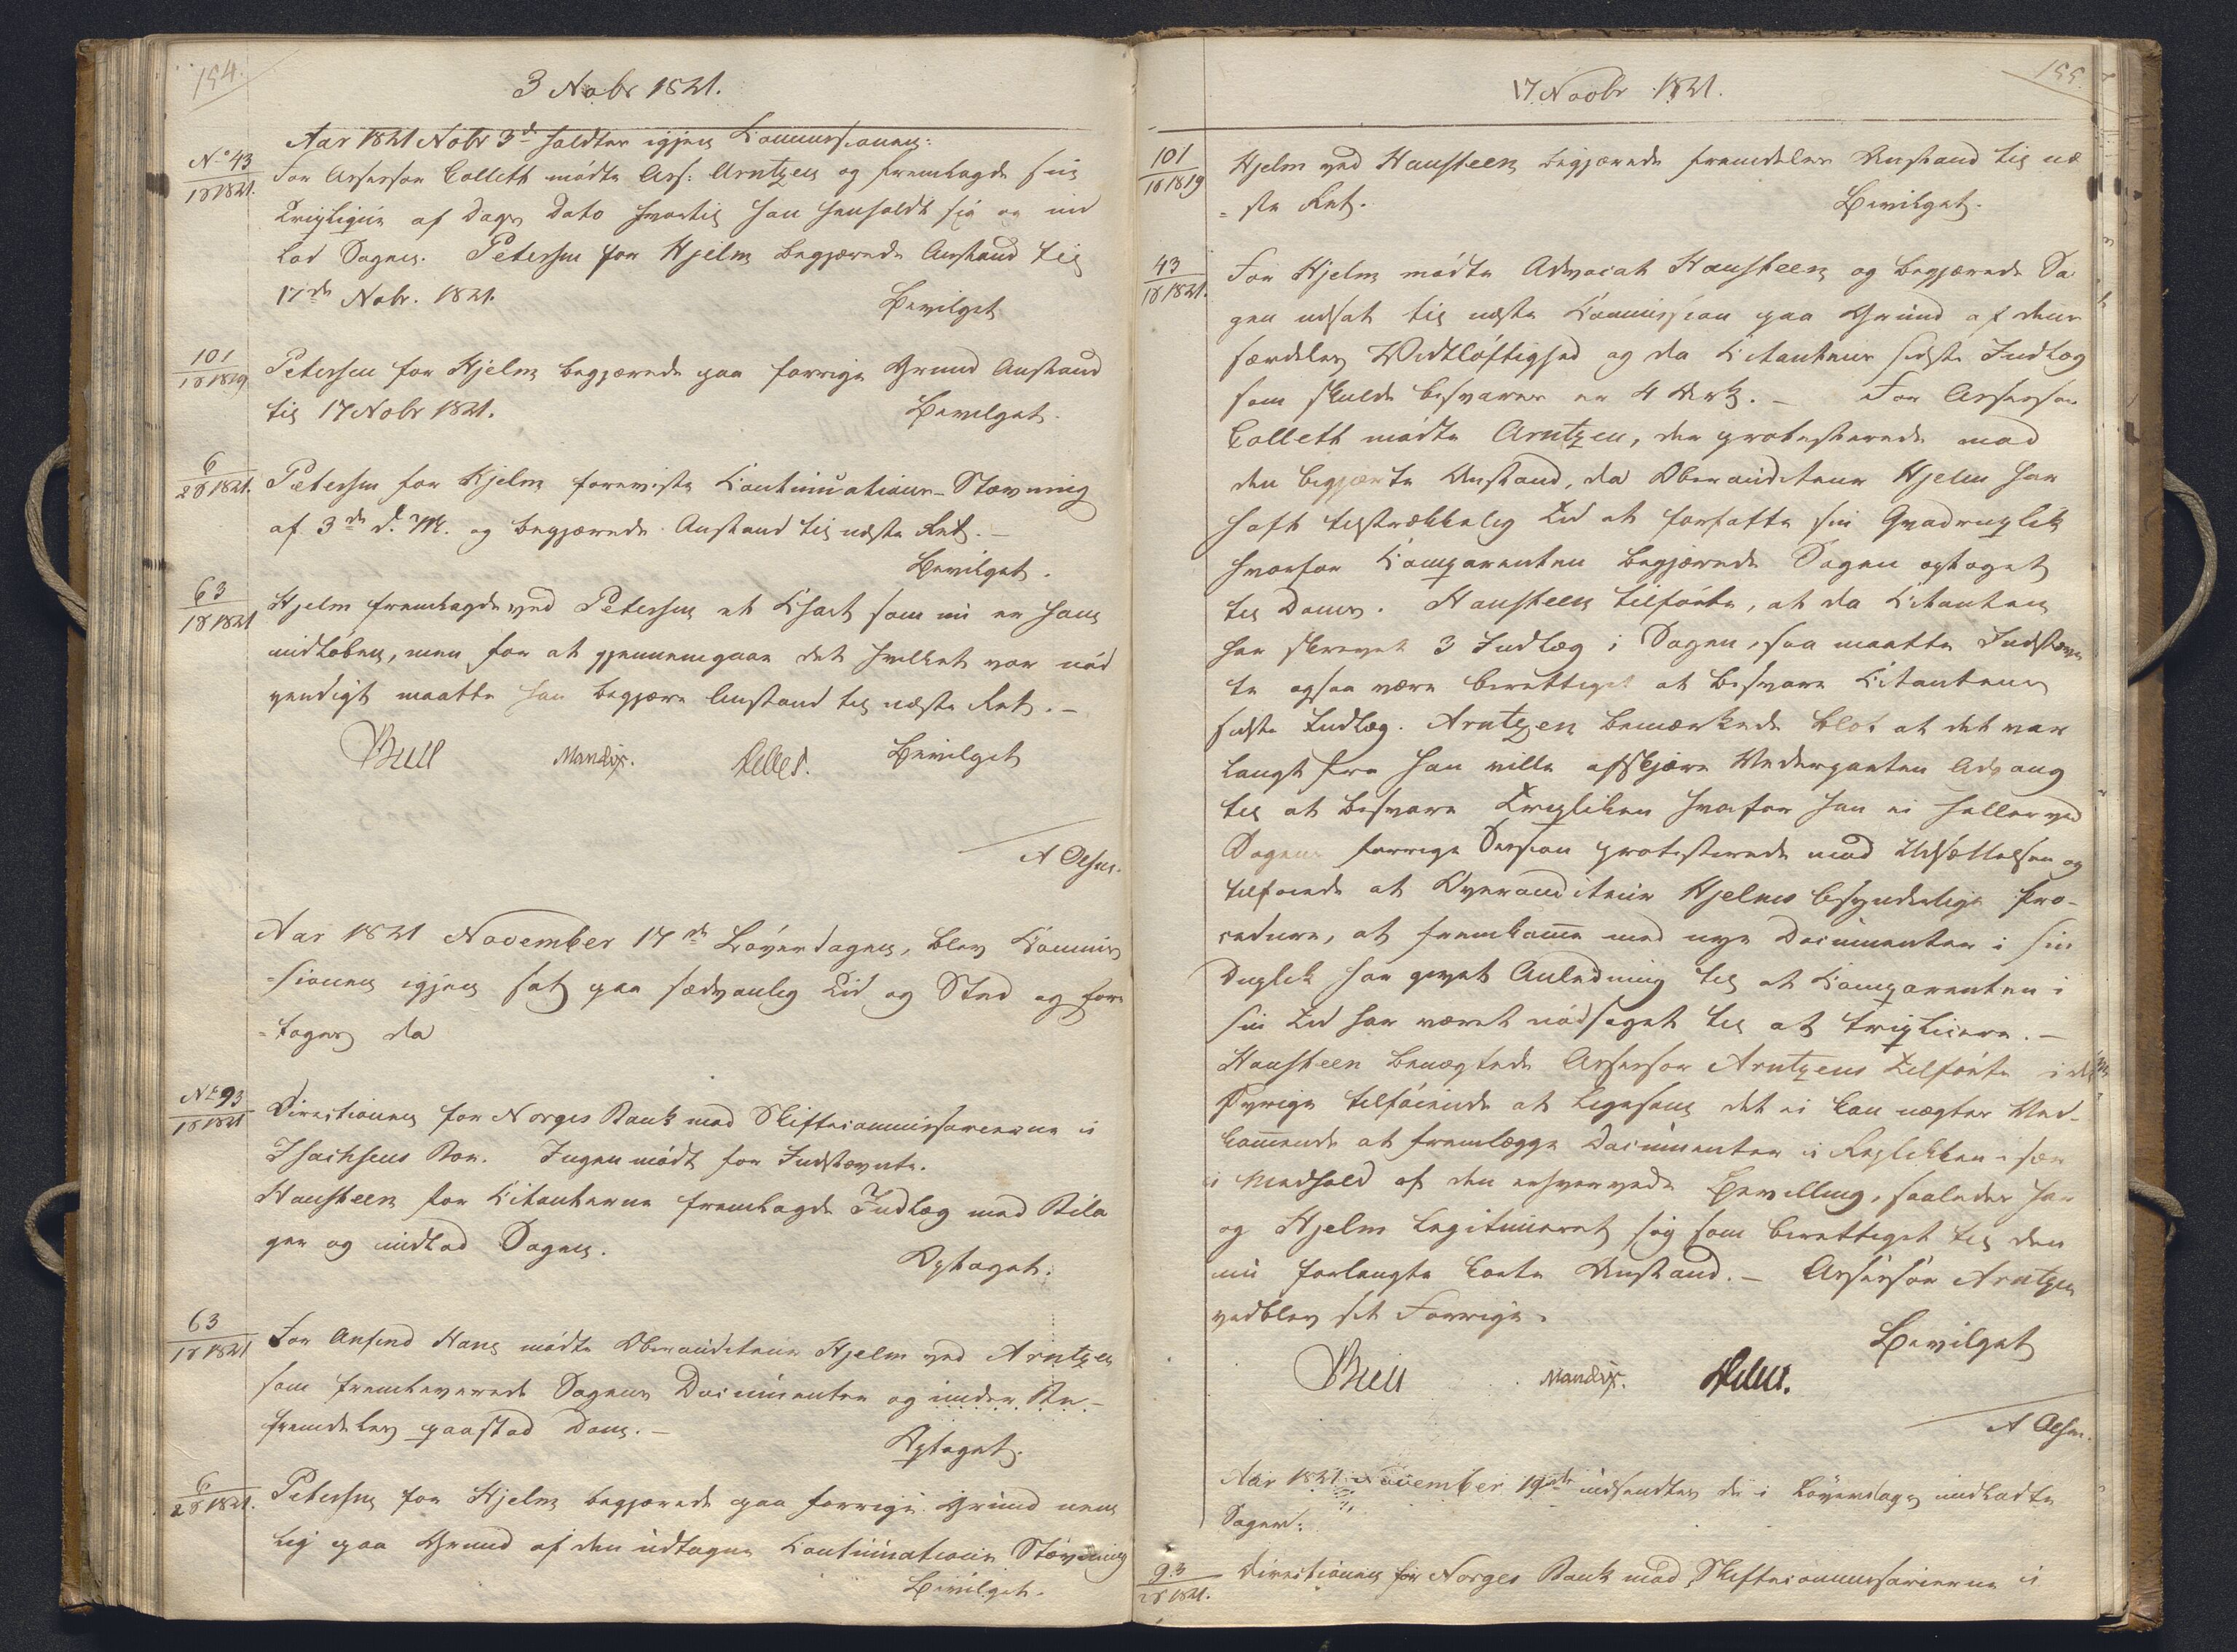 154.
3 Novbr 1821.
Aar 1821 Novbr 3die holdtes igjen Kommissionen:
No 43
1S 1821.
For Assessor Collett mødte Ass: Arntzen og fremlagde sin
Triplique af Dags Dato hvortil han henholdt sig og ind
lod Sagen. Petersen for Hjelm begjærede Anstand til
17de Nobr. 1821.
Bevilget
101
1S 1819
Petersen for Hjelm begjærede paa forrige Grund Anstand
til 17 Nobr 1821.
Bevilget.
6
2S 1821.
Petersen for Hjelm foreviste Continuations-Stævning
af 3de d. M. og begjærede Anstand til næste Ret. –
Bevilget.
63
1S 1821
Hjelm fremlagde ved Petersen et Skort som nu er ham
indløben, men for at gjennemgaae det hvilket var nød
vendigt maatte han begjære Anstand til næste Ret. –
Bull Mandix. Debes. Bevilget
A Olsen.
Aar 1821 November 17de Løverdagen, blev Kommis
=sionen igjen sat paa sædvanlig Tid og Sted og fore
=toges da
No 93
1S 1821
Directionen for Norges Bank mod Skiftecommissarierne i
Isachsens Boe. Ingen mødt for Indstævnte.
Hansteen for Citanterne fremlagde Indlæg med Bila
ger og indlod Sagen.
Optaget.
63
1S 1821
For Amund Hans mødte Overauditeur Hjelm ved Arntzen
som fremleverede Sagens Documenter og under Be-
fremdelse paastod Dom. –
Optaget.
6
2S 1821.
Petersen for Hjelm begjærede paa forrige Grund nem
lig paa Grund af den udtagne Continuations Stævning
Bevilget.
155.
17 Novbr 1821.
101
1S 1819
Hjelm ved Hansteen begjærede fremdeles Anstand til næ
=ste Ret.
Bevilget.
43
1S 1821.
For Hjelm mødte Advocat Hansteen og begjærede Sa
gen udsat til næste Commission paa Grund af dens
særdeles Vidtløftighed og da Citantens sidste Indlæg
som skulde besvares er 4 Ark. – For Assessor
Collett mødte Arntzen, der protesterede mod
den begjærte Anstand, da Overauditeur Hjelm har
haft tilstrækkelig Tid at forfatte sin Qvadruplik
hvorfor Comparenten begjærede Sagen optaget
til Doms. Hansteen tilføiede, at da Citanten
har skrevet 3 Indlæg i Sagen, saa maatte Indstævn
te ogsaa være berettiget at besvare Citantens
sidste Indlæg. Arntzen bemærkede blot at det var
langt fra han vilde afskjære Vederparten Adgang
til at besvare Tripliken hvorfor han ei heller ved
Sagens forrige Session protesterede mod Udsættelsen og
tilføiede at Overauditeur Hjelms besynderlige Pro-
cedure, at fremkomme med nye Documenter i sin
Duplik har givet Anledning til at Comparenten i
sin Tid har været nødsaget til at triplicere. –
Hansteen benegtede Assessor Arntzens Tilførte i det
Øvrige tilføiende at ligesom det ei kan negtes Ved-
kommende at fremlægge Documenter i Replikken især
i Medhold af den erhvervede Bevilling, saaledes har
og Hjelm legitimeret sig som berettiget til den
nu forlangte korte Anstand. – Assessor Arntzen
vedblev sit Forrige.
Bevilget
Bull Mandix. Debes.
A Olsen.
Aar 1821 November 19de indsendtes de i Løverdags indladte
Sager:
93
2S 1821.
Directionen for Norges Bank mod Skiftecommissarierne i